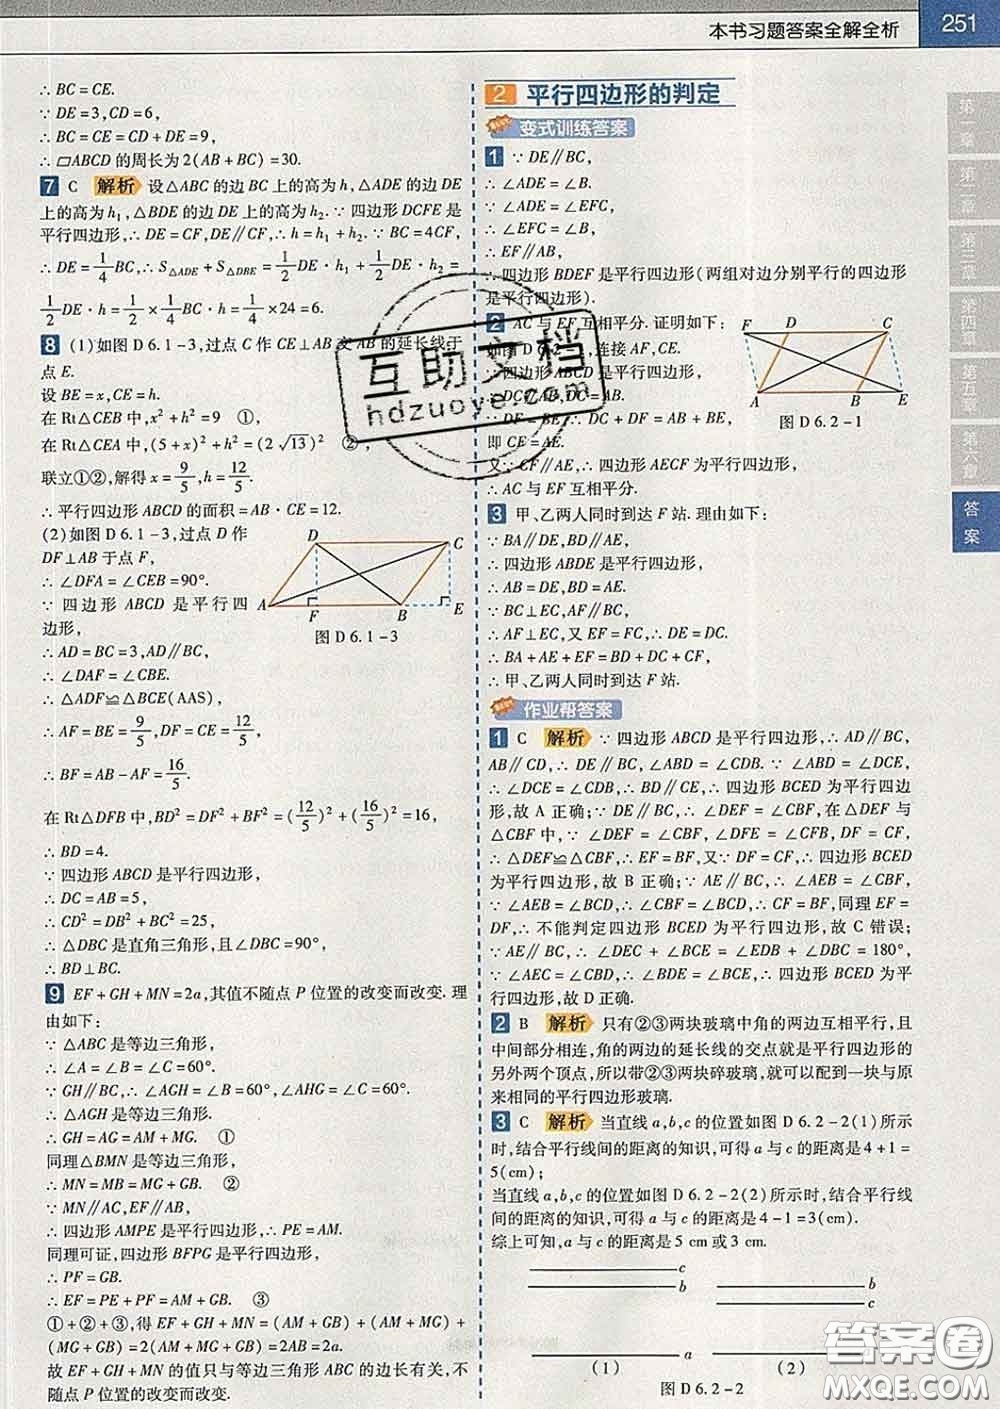 本书习题答案全解全析
251
∴ BC = CE.
∵ DE = 3, CD = 6,
∴ BC = CE = CD + DE = 9,
∴ ▱ABCD 的周长为 2(AB + BC) = 30.
7 C 解析 设△ABC 的边 BC 上的高为 h, △ADE 的边 DE
上的高为 h₁, △BDE 的边 DE 上的高为 h₂. ∵ 四边形 DCFE 是
平行四边形, ∴ DE = CF, DE∥CF, ∴ h = h₁ + h₂. ∵ BC = 4CF,
∴ DE = 1/4 BC, ∴ S△ADE + S△DBE = 1/2 DE · h₁ + 1/2 DE · h₂ =
1/2 DE · h = 1/2 × 1/4 BC · h = 1/4 × 24 = 6.
8 (1)如图 D 6.1-3, 过点 C 作 CE⊥AB 交 AB 的延长线于
点 E.
设 BE = x, CE = h.
在 Rt△CEB 中, x² + h² = 9 ①,
在 Rt△CEA 中, (5 + x)² + h² = (2√13)² ②,
联立①②, 解得 x = 9/5, h = 12/5.
∴ 平行四边形 ABCD 的面积 = AB · CE = 12.
(2)如图 D 6.1-3, 过点 D 作
DF⊥AB 于点 F,
∴ ∠DFA = ∠CEB = 90°.
∵ 四边形 ABCD 是平行四
边形,
∴ AD = BC = 3, AD∥BC,
∴ ∠DAF = ∠CBE.
∴ △ADF≌△BCE(AAS).
∴ AF = BE = 9/5, DF = CE = 12/5,
∴ BF = AB - AF = 16/5.
在 Rt△DFB 中, BD² = DF² + BF² = (12/5)² + (16/5)² = 16,
∴ BD = 4.
∵ 四边形 ABCD 是平行四边形,
∴ DC = AB = 5,
∴ CD² = DB² + BC² = 25,
∴ △DBC 是直角三角形, 且∠DBC = 90°,
∴ BD⊥BC.
D
C
A
F
B
E
图 D 6.1-3
9 EF + GH + MN = 2a, 其值不随点 P 位置的改变而改变. 理
由如下:
∵ △ABC 是等边三角形,
∴ ∠A = ∠B = ∠C = 60°.
∵ GH∥BC, ∴ ∠AGH = ∠B = 60°, ∠AHG = ∠C = 60°.
∴ △AGH 是等边三角形.
∴ GH = AG = AM + MG. ①
同理△BMN 是等边三角形,
∴ MN = MB = MG + GB. ②
∵ MN∥AC, EF∥AB,
∴ 四边形 AMPE 是平行四边形, ∴ PE = AM.
同理可证, 四边形 BFPG 是平行四边形,
∴ PF = GB.
∴ EF = PE + PF = AM + GB. ③
①+②+③, 得 EF + GH + MN = (AM + GB) + (AM + MG) +
(MG + GB) = 2(AM + MG + GB) = 2AB = 2a.
故 EF + GH + MN 的值只与等边三角形 ABC 的边长有关, 不
随点 P 位置的改变而改变.
2 平行四边形的判定
变式训练答案
1 ∵ DE∥BC,
∴ ∠ADE = ∠B.
∵ ∠ADE = ∠EFC,
∴ ∠EFC = ∠B.
∴ EF∥AB,
∴ 四边形 BDEF 是平行四边形(两组对边分别平行的四边形
是平行四边形).
2 AC 与 EF 互相平分. 证明如下:
如图 D 6.2-1, 连接 AF, CE.
∵ 四边形 ABCD 是平行四边形,
∴ DC∥AB, DC = AB.
∵ DF = BE, ∴ DC + DF = AB + BE,
即 CF = AE.
又∵ CF∥AE, ∴ 四边形 AECF 是平行四边形,
∴ AC 与 EF 互相平分.
F
D
C
A
B
E
图 D 6.2-1
3 甲、乙两人同时到达 F 站. 理由如下:
∵ BA∥DE, BD∥AE,
∴ 四边形 ABDE 是平行四边形,
∴ AB = DE, BD = AE.
∵ BC⊥EC, AF∥BC,
∴ AF⊥EC, 又 EF = FC, ∴ DE = DC.
∴ BA + AE + EF = BD + DC + CF,
∴ 甲、乙两人同时到达 F 站.
作业帮答案
1 C 解析 ∵ 四边形 ABCD 是平行四边形, ∴ AD∥BC,
AB∥CD, ∴ DE∥BC, ∠ABD = ∠CDB. ∵ ∠ABD = ∠DCE,
∴ ∠DCE = ∠CDB, ∴ BD∥CE, ∴ 四边形 BCED 为平行四边
形, 故 A 正确; ∵ DE∥BC, ∴ ∠DEF = ∠CBF, 在△DEF 与
△CBF 中, ∵ ∠DEF = ∠CBF, ∠DFE = ∠CFB, DF = CF,
∴ △DEF≌△CBF, ∴ EF = BF, 又∵ DF = CF, ∴ 四边形 BCED
为平行四边形, 故 B 正确; ∵ AE∥BC, ∴ ∠AEB = ∠CBF,
∵ ∠AEB = ∠BCD, ∴ ∠CBF = ∠BCD, ∴ CF = BF, 同理 EF =
DF, ∴ 不能判定四边形 BCED 为平行四边形, 故 C 错误;
∵ AE∥BC, ∴ ∠DEC + ∠BCE = ∠EDB + ∠DBC = 180°,
∵ ∠AEC = ∠CBD, ∴ ∠BDE = ∠BCE, ∴ 四边形 BCED 为平
行四边形, 故 D 正确.
2 B 解析 只有②③两块玻璃中角的两边互相平行, 且
中间部分相连, 角的两边的延长线的交点就是平行四边形的
另外两个顶点, 所以带②③两块碎玻璃, 就可以配到一块与原
来相同的平行四边形玻璃.
3 C 解析 当直线 a, b, c 的位置如图 D 6.2-2(1)所示
时, 结合平行线间的距离的知识, 可得 a 与 c 的距离是 4 + 1 =
5(cm);
当直线 a, b, c 的位置如图 D 6.2-2(2)所示时, 结合平行线
间的距离的知识, 可得 a 与 c 的距离是 4 - 1 = 3(cm).
综上可知, a 与 c 的距离是 5 cm 或 3 cm.
c
b
a
(1)
b
c
(2)
图 D 6.2-2
第一章
第二章
第三章
第四章
第五章
第六章
答案
互助文档
hdzuoye.com
答案圈
MXQE.COM